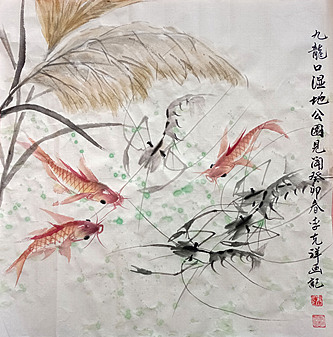 九龍口湿地公園見聞癸卯春李克祥画記